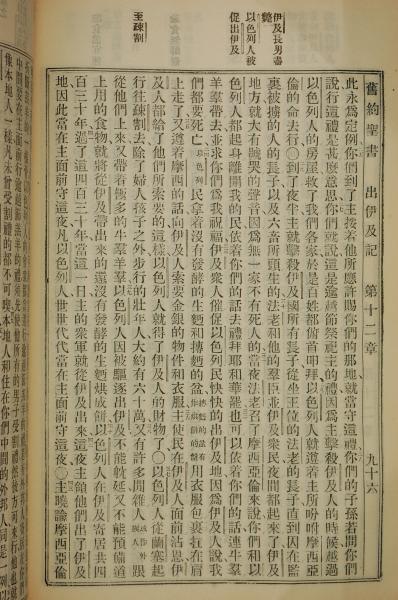 伊及長男盡
斃
以色列人被
促出伊及
至疎割
舊約聖書 出伊及記 第十二章 九十六
此永爲定例你們到了主按着他所應許賜你們的那地就當守這禮你們的子孫若問你們
說行這禮是甚麼意思你們就說這是逾越節祭祀主的禮因爲主擊殺伊及人的時候越過
以色列人的房屋救了我們各家於是百姓都俯首叩拜以色列人就遵着主所吩咐摩西亞
倫的命去行○到了夜半主就擊殺伊及國所有長子從坐王位的法老的長子直到囚在監
裏被擄的人的長子以及六畜所頭生的法老和他的羣臣並伊及衆民夜間都起來了伊及
地方就大有號哭的聲音因爲無一家不有死人的當夜法老召了摩西亞倫來說你們和以
色列人都起身離開我的民依着你們的話去禮拜耶和華罷也可以依着你們的話連牛羣
羊羣帶去並求你們爲我祝福伊及衆人催促以色列民快快的出伊及地因爲伊及人說我
們都要死亡以色列民拿着沒有發酵的生麵和摶麵的盆用衣服包裹扛在肩
上走了又遵着摩西的話向伊及人索要金銀的物件和衣服主使民在伊及人面前沾恩伊
及人都給了他們所索要的這樣以色列人就得了伊及人的財物了○以色列人從蘭塞起
行往疎割去除了婦人孩子之外步行的壯年人大約有六十萬又有許多閒雜人跟
從他們上來又帶着極多的牛羣羊羣以色列人因被驅逐出伊及不能躭延又不能預備道
上用的食物就將從伊及帶出來的還沒有發酵的生麵烘成餅以色列人在伊及寄居共四
百三十年過了這四百三十年當這一日主的衆軍就從伊及出來這夜主領他們出了伊及
地因此當在主面前守這夜凡以色列人世世代代當在主面前守這夜○主曉諭摩西亞倫